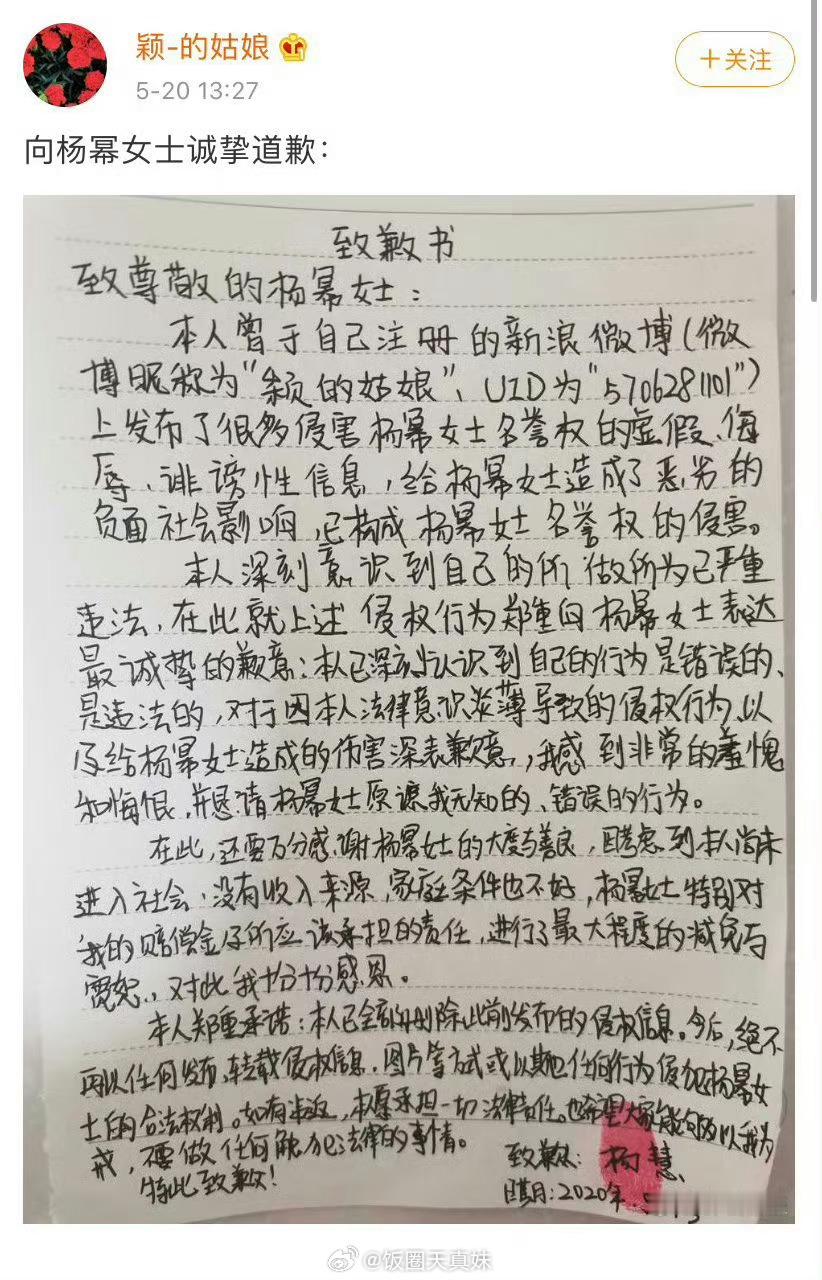 颖-的姑娘
5-20 13:27
+关注
向杨幂女士诚挚道歉：
致歉书
致尊敬的杨幂女士：
本人曾于自己注册的新浪微博（微
博昵称为“颖的姑娘”、UID为“5706281101”）
上发布了很多侵害杨幂女士名誉权的虚假、侮
辱、诽谤性信息，给杨幂女士造成了恶劣的
负面社会影响，已构成杨幂女士名誉权的侵害。
本人深刻意识到自己的所做所为已严重
违法，在此就上述侵权行为郑重向杨幂女士表达
最诚挚的歉意：本人已深刻认识到自己的行为是错误的、
是违法的，对于因本人法律意识淡薄导致的侵权行为、以
及给杨幂女士造成的伤害深表歉意，我感到非常的羞愧
和悔恨，并恳请杨幂女士原谅我无知的、错误的行为。
在此，还要万分感谢杨幂女士的大度与善良，因考虑到本人尚未
进入社会，没有收入来源，家庭条件也不好，杨幂女士特别对
我的赔偿金及所应该承担的责任，进行了最大程度的减免与
宽恕，对此我十分十分感恩。
本人郑重承诺：本人已全部删除此前发布的侵权信息。今后，绝不
再以任何发布、转载侵权信息、图片等方式或以其他任何行为侵犯杨幂女
士的合法权利。如有违反，本愿承担一切法律责任。也希望大家能够以我为
戒，不要做任何触犯法律的事情。
特此致歉！
致歉人：杨慧
日期：2020年
@饭圈天真妹